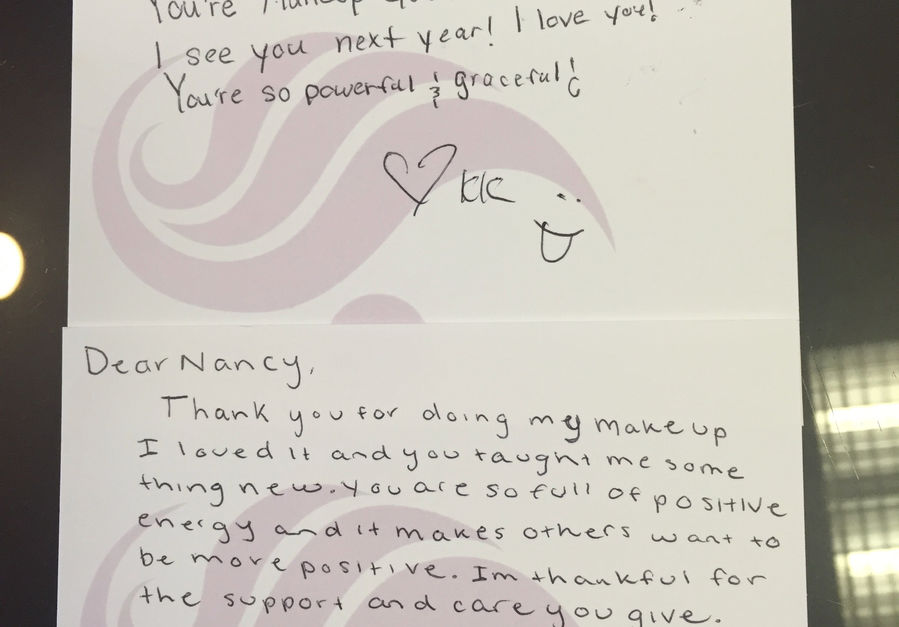 You're Makeup
I see you next year! I love you!
You're so powerful & graceful!
KK
Dear Nancy,
Thank you for doing my makeup
I loved it and you taught me some
thing new. You are so full of positive
energy and it makes others want to
be more positive. Im thankful for
the support and care you give.